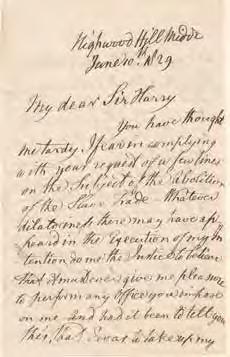 Highwood Hill Middx
June 10th 1829
My dear Sir Harry
You have thought
me tardy I fear in complying
with your request of a few lines
on the Subject of the Abolition
of the Slave Trade. Whatever
dilatoriness there may have ap
peared in the Execution of my In
tention do me the Justice to believe
that it must ever give me pleasure
to perform any Office you impose
on me and had it been to tell you
this, that I was to take up my